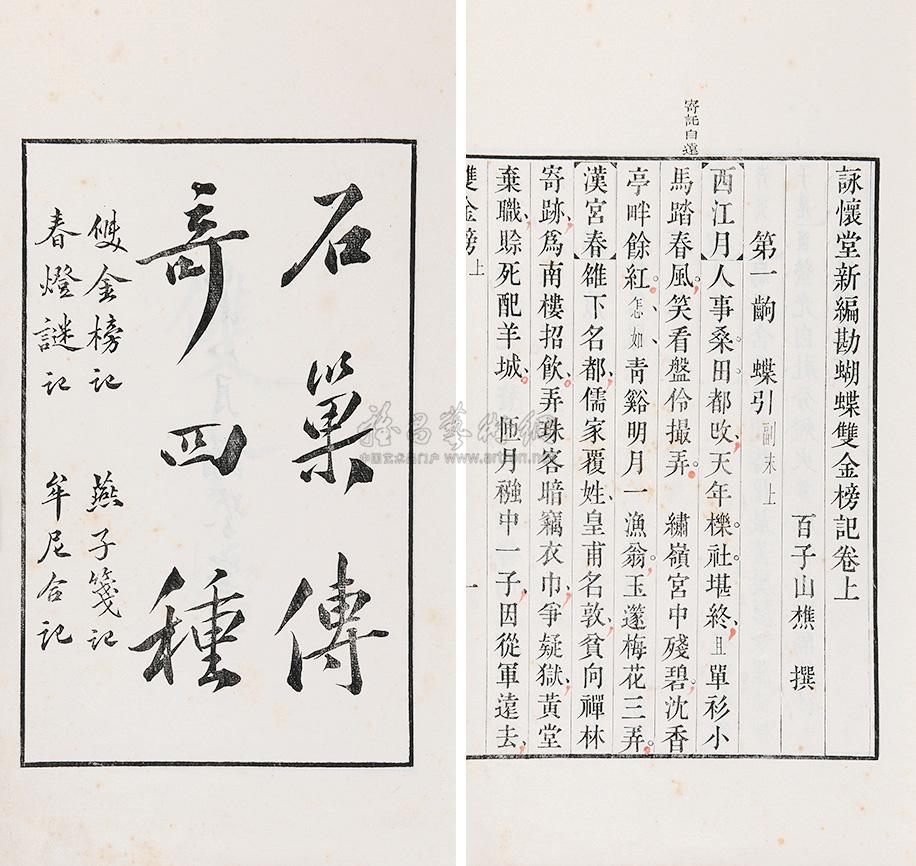 石巢傳
奇四種
雙金榜記 燕子箋記
春燈謎記 牟尼合記
寄託自遠
詠懷堂新編勘蝴蝶雙金榜記卷上
百子山樵 撰
第一齣 蝶引 副末上
西江月 人事桑田都改天年櫟社堪終且單衫小
馬踏春風笑看盤伶撮弄 繡嶺宮中殘碧沈香
亭畔餘紅怎如靑谿明月一漁翁玉邃梅花三弄
漢宮春 雒下名都儒家覆姓皇甫名敦貧向禪林
寄跡爲南樓招飮弄珠客暗竊衣巾爭疑獄黃堂
棄職賒死配羊城 匝月襁中一子因從軍遠去
雙金榜 上 一
雅昌藝術網
中国艺术品门户 www.artron.net